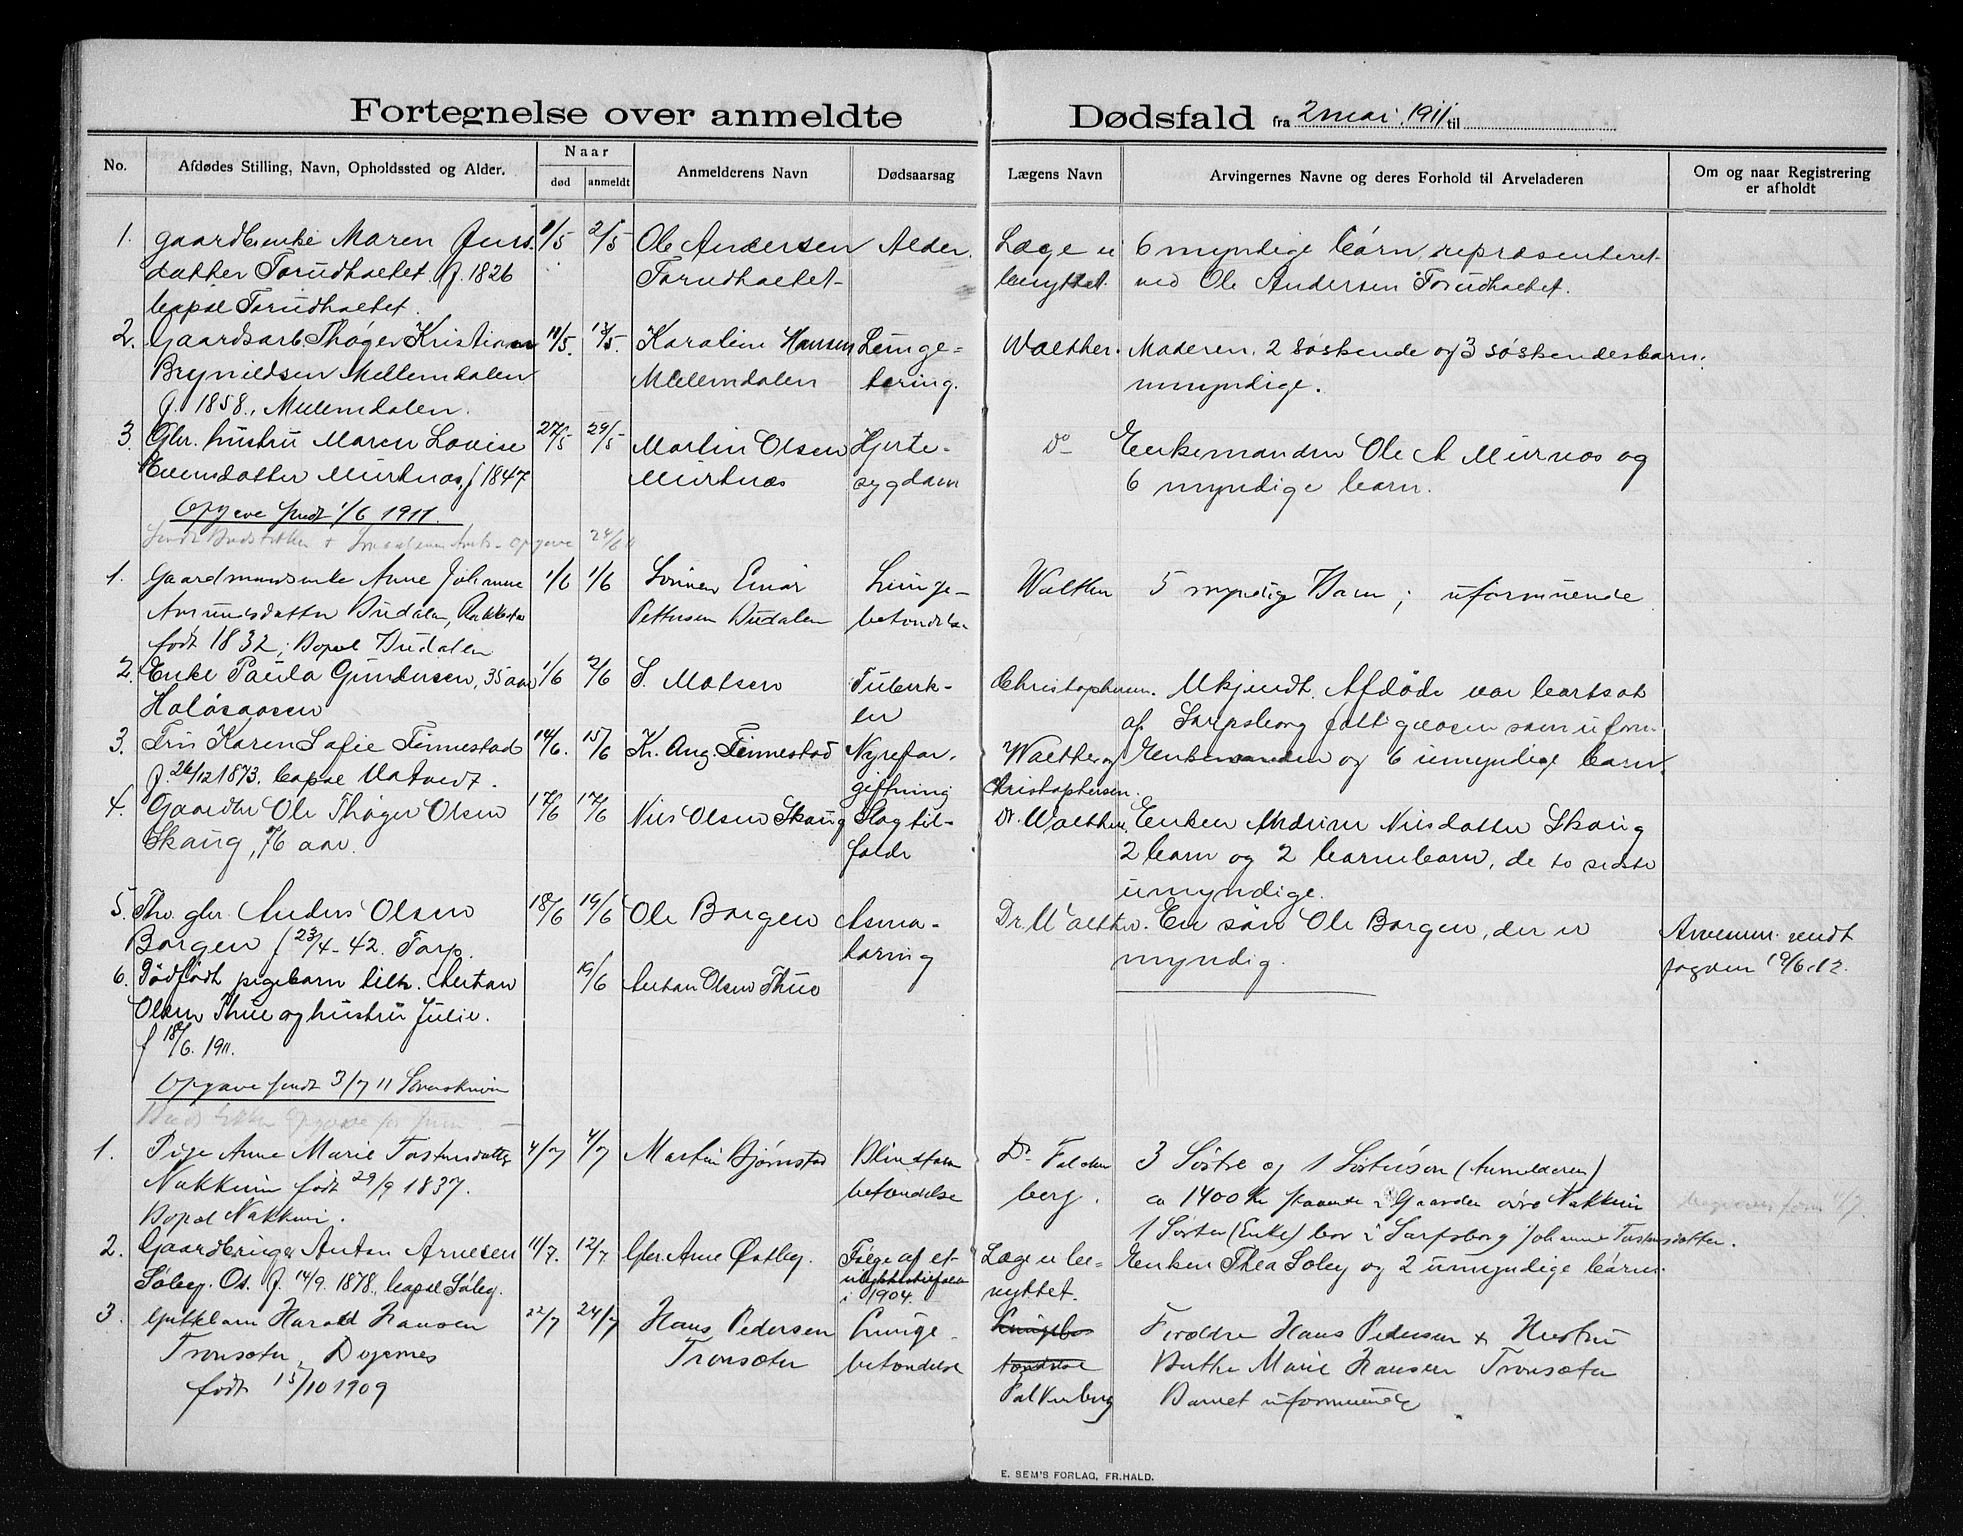 Fortegnelse over anmeldte Dødsfald fra 2 mai 1911 til
No. Afdødes Stilling, Navn, Opholdssted og Alder. Naar død anmeldt Anmelderens Navn Dødsaarsag Lægens Navn Arvingernes Navne og deres Forhold til Arveladeren Om og naar Registrering er afholdt
1. Gaardbr.enke Maren Jens- 1/5 2/5 Ole Andersen Alder. Læge ei 6 myndige børn, repræsenteret
datter Torudholtet. f. 1826 Torudholtet benyttet. ved Ole Andersen Torudholtet.
bopæl Torudholtet.
2. Gaardsarb. Thøger Kristian 11/5. 13/5. Karoline Hansen Lunge- Walther. Moderen, 2 søskende og 3 søskendesbarn.
Brynildsen Mellemdalen Mellemdalen tæring. umyndige.
f. 1858., Mellemdalen.
3 Gbr. hustru Maren Lovise 27/5 29/5 Martin Olsen Hjerte- Do Enkemanden Ole A Murnæs og
Evensdatter Murtnæs, f 1847 Murtnæs sygdom 6 myndige barn.
Opgave sendt 1/6 1911.
1. Gaardmandsenke Anne Johanne 1/6 1/6 Sønnen Einar Lunge- Walther 5 myndige Børn; uformuende
Amundsdatter Budalen, Rakkestad Pettersen Budalen betændelse
født 1832; Bopæl Budalen
2. Enke Paula Gundersen, 35 aar 1/6 2/6 S. Matsen Tuberk- Christophersen. Ukjendt. Afdøde var bortsat
ler af Sarpsborg fattigvæsen som uform.
3. Fru Karen Sofie Finnestad 14/6. 15/6 Kr. Aug. Finnestad Nyrefor- Walther og Enkemanden og 6 umyndige barn.
f. 26/12 1873. bopæl Vatvedt. giftning Christophersen.
4. Gaardbr Ole Thøger Olsen 17/6 17/6 Nils Olsen Skaug Slagtil- Dr. Walther. Enken Andrine Nilsdatter Skaug
Skaug, 76 aar. fælde 2 barn og 2 barnebarn, de to sidste
umyndige.
5. Fhv. gbr. Anders Olsen 18/6 19/6 Ole Borgen Asma- Dr. Walther. En søn Ole Borgen, der er
Borgen f 23/4-42. Torp. tæring myndig. Arvemm. sendt
6. Dødfødt pigebarn tilh. Anton 19/6 Anton Olsen Thue fogden 10/6.12.
Olsen Thue og hustru Julie.
f 18/6. 1911.
Opgave sendt 3/7 11 Sorenskriver
1. Pige Anne Marie Torstensdatter 4/7 4/7 Martin Bjørnstad Blindtarm Dr Falken 3 Søstre og 1 Søstersøn (Anmelderen)
Nakkim født 29/9 1837. betændelse berg. ca 1400 Kr paaante i Gaarden øvre Nakkim
Bopæl Nakkim. 1 Søster (Enke) bor i Sarpsborg Johanne Torstensdatter.
2. Gaardbruger Anton Arnesen 11/7. 12/7. Gbr. Arne Østby. Følge af et Læge ei be- Enken Thea Soley og 2 umyndige børn.
Søley. Os. f. 14/9. 1878., bopæl Søley. ulykkestilfælde nyttet.
i 1904.
3. Guttebarn Harald Hansen 22/7 24/7 Hans Pedersen Lunge- Lungebe- Forældre Hans Pedersen & Hustru
Tronsæter, Degernes Tronsæter betændelse tændelse Berthe Marie Hansen Tronsæter
født 15/10 1909 Falkenberg Barnet uformuende.
E. SEM'S FORLAG, FR.HALD.